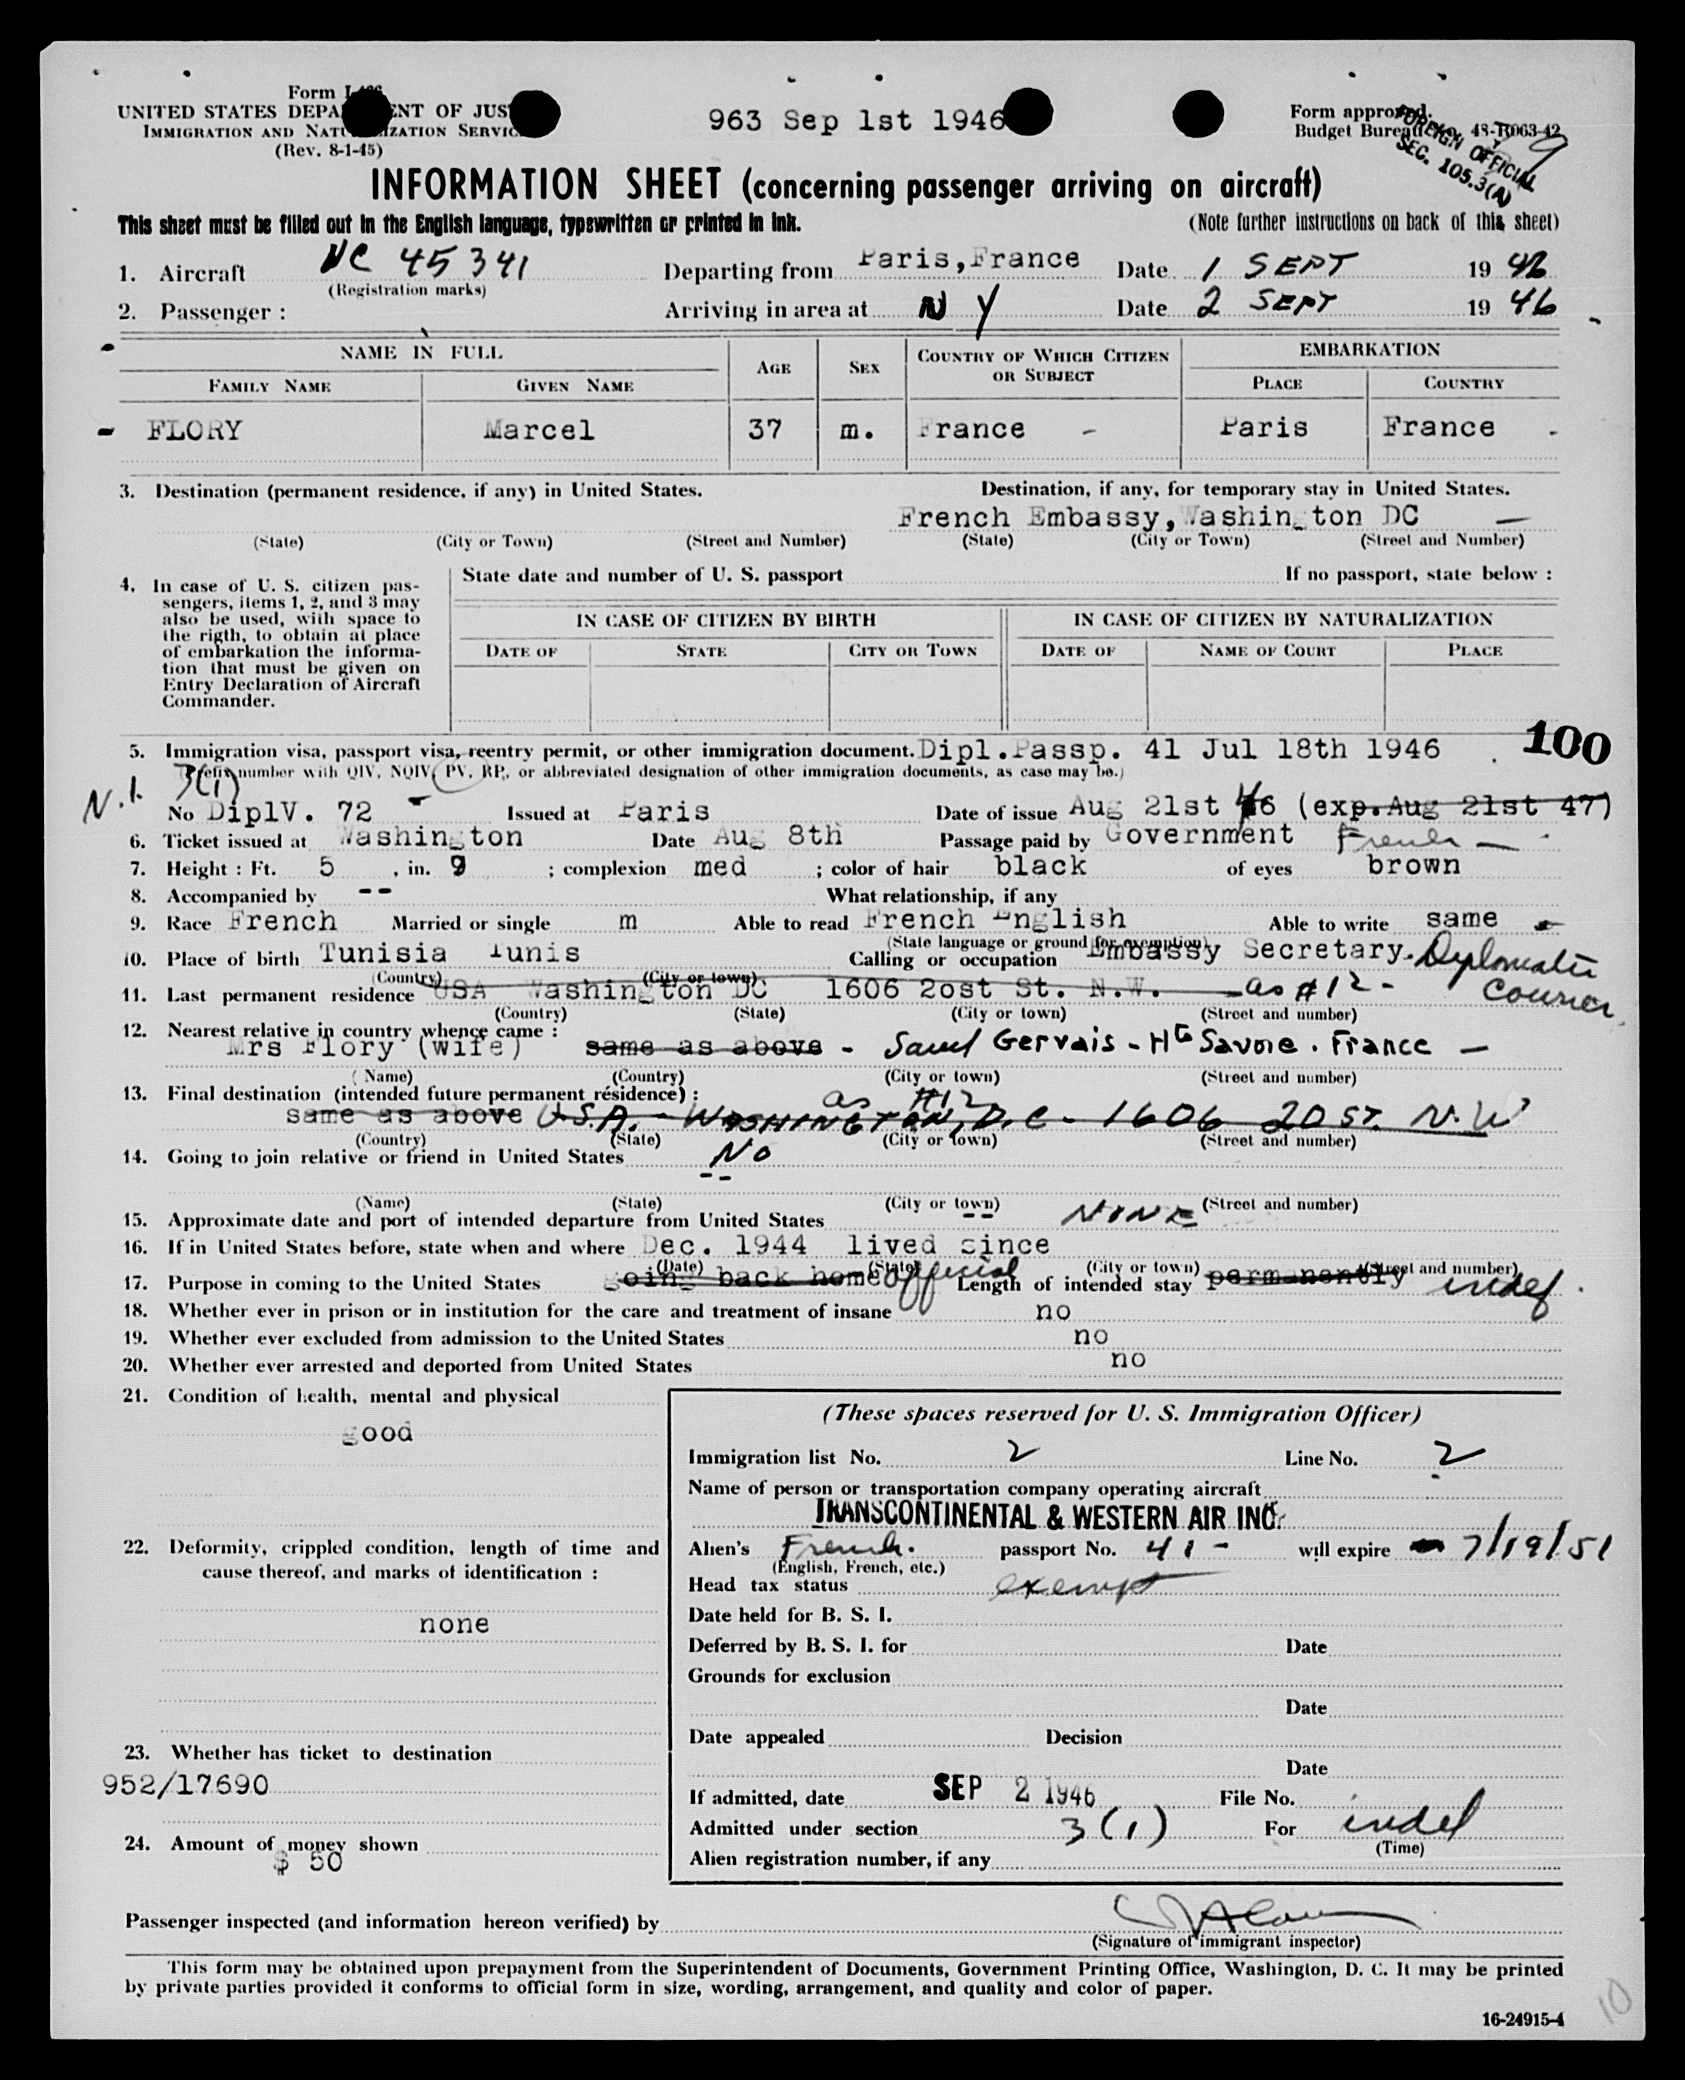 Form I-466
UNITED STATES DEPARTMENT OF JUSTICE
IMMIGRATION AND NATURALIZATION SERVICE
(Rev. 8-1-45)
963 Sep 1st 1946
Form approved.
Budget Bureau No. 43-R063-42
FOREIGN OFFICIAL
SEC. 105.3(A)
INFORMATION SHEET (concerning passenger arriving on aircraft)
This sheet must be filled out in the English language, typewritten or printed in ink.
(Note further instructions on back of this sheet)
1. Aircraft NC 45341 Departing from Paris, France Date 1 SEPT 19 46
(Registration marks)
2. Passenger : Arriving in area at NY Date 2 SEPT 19 46
NAME IN FULL AGE SEX COUNTRY OF WHICH CITIZEN OR SUBJECT EMBARKATION
FAMILY NAME GIVEN NAME PLACE COUNTRY
- FLORY Marcel 37 m. France - Paris France -
3. Destination (permanent residence, if any) in United States. Destination, if any, for temporary stay in United States.
French Embassy, Washington DC —
(State) (City or Town) (Street and Number) (State) (City or Town) (Street and Number)
4. In case of U. S. citizen pas-
sengers, items 1, 2, and 3 may
also be used, with space to
the rigth, to obtain at place
of embarkation the informa-
tion that must be given on
Entry Declaration of Aircraft
Commander.
State date and number of U. S. passport If no passport, state below :
IN CASE OF CITIZEN BY BIRTH IN CASE OF CITIZEN BY NATURALIZATION
DATE OF STATE CITY OR TOWN DATE OF NAME OF COURT PLACE
100
5. Immigration visa, passport visa, reentry permit, or other immigration document. Dipl.Passp. 41 Jul 18th 1946
(Prefix number with QIV, NQIV, PV, RP, or abbreviated designation of other immigration documents, as case may be.)
N.I. 3(1)
No DiplV. 72 Issued at Paris Date of issue Aug 21st 46 (exp.Aug 21st 47)
6. Ticket issued at Washington Date Aug 8th Passage paid by Government French —
7. Height : Ft. 5 , in. 9 ; complexion med ; color of hair black of eyes brown
8. Accompanied by -- What relationship, if any
9. Race French Married or single m Able to read French English Able to write same
(State language or ground for exemption)
10. Place of birth Tunisia Tunis Calling or occupation Embassy Secretary. Diplomatic Courier
(Country) (City or town)
11. Last permanent residence USA Washington DC 1606 2ost St. N.W. as #12 -
(Country) (State) (City or town) (Street and number)
12. Nearest relative in country whence came :
Mrs Flory (wife) same as above - Saint Gervais - Hte Savoie . France —
(Name) (Country) (City or town) (Street and number)
13. Final destination (intended future permanent résidence) : as #12
same as above U.S.A. - WASHINGTON, D.C - 1606 20 ST. N.W
(Country) (State) (City or town) (Street and number)
14. Going to join relative or friend in United States No
--
(Name) (State) (City or town) (Street and number)
15. Approximate date and port of intended departure from United States -- NONE
16. If in United States before, state when and where Dec. 1944 lived since
(Date) (State) (City or town) (Street and number)
17. Purpose in coming to the United States going back home official Length of intended stay permanently indef.
18. Whether ever in prison or in institution for the care and treatment of insane no
19. Whether ever excluded from admission to the United States no
20. Whether ever arrested and deported from United States no
21. Condition of health, mental and physical
good
22. Deformity, crippled condition, length of time and
cause thereof, and marks of identification :
none
23. Whether has ticket to destination
952/17690
24. Amount of money shown
$ 50
(These spaces reserved for U. S. Immigration Officer)
Immigration list No. 2 Line No. 2
Name of person or transportation company operating aircraft
TRANSCONTINENTAL & WESTERN AIR INC.
Alien's French. passport No. 41 - will expire 7/19/51
(English, French, etc.)
Head tax status exempt
Date held for B. S. I.
Deferred by B. S. I. for Date
Grounds for exclusion
Date
Date appealed Decision
Date
If admitted, date SEP 2 1946 File No.
Admitted under section 3(1) For indef
(Time)
Alien registration number, if any
Passenger inspected (and information hereon verified) by
(Signature of immigrant inspector)
This form may be obtained upon prepayment from the Superintendent of Documents, Government Printing Office, Washington, D. C. It may be printed
by private parties provided it conforms to official form in size, wording, arrangement, and quality and color of paper.
16-24915-4
10